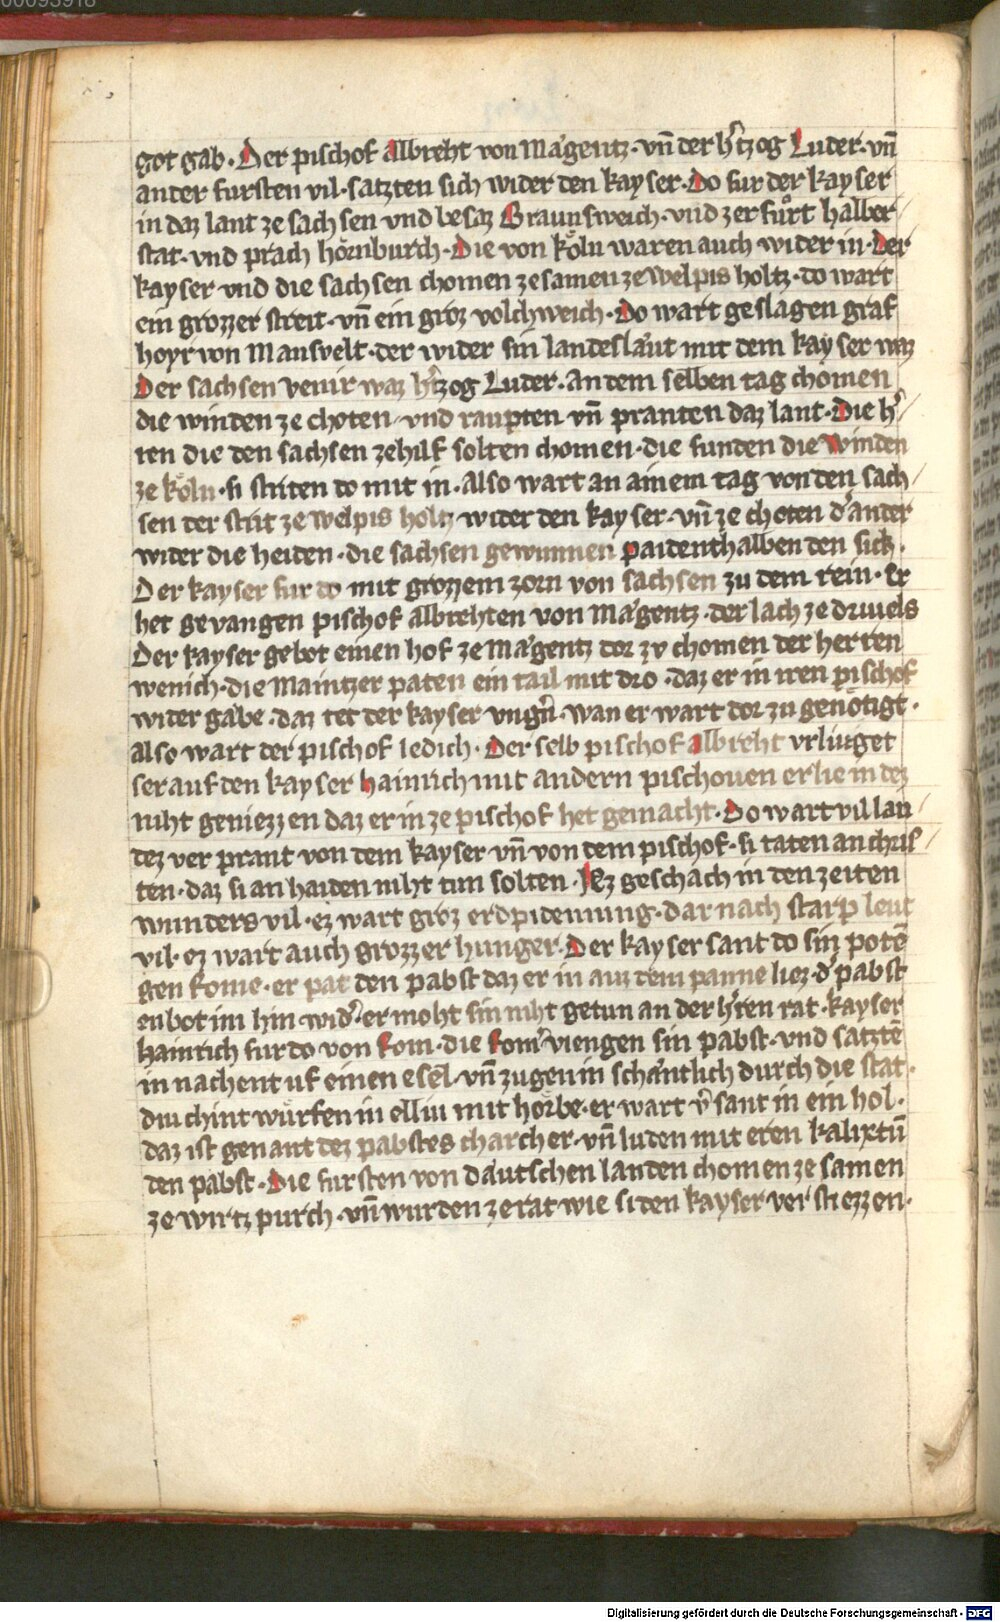 got gab · Der pischof albreht von Magentz · vn̄ der h̓tzog Luder · vn̄
ander fursten vil · satzten sich wider den kayser · Do fur der kayser
in daz lant ze sachsen vnd besaz Braunsweich · vnd zerfůrt halber/
stat · vnd prach hornburch · Die von koͤln waren auch wider in · Der
kayser vnd die sachsen chomen zesamen ze welpis holtz · do wart
ein grozzer streit · vn̄ ein groz volchweich · Do wart geslagen graf
hoyr von Mansvelt · der wider sin landeslaut mit dem kayser waz
Der sachsen venir waz h̓tzog Luder · an dem selben tag chomen
die winden ze choten · vnd raupten vn̄ pranten daz lant · Die h̓/
ren die den sachsen zehilf solten chomen · die funden die winden
ze koͤln · si striten do mit in · Also wart an ainem tag von den sach/
sen der strit ze welpis holtz wider den kayser · vn̄ ze choten d̓ ander
wider die heiden · die sachsen gewunnen paidenthalben den sick ·
Der kayser fur do mit grozzem zorn von sachsen zu dem rein · Er
het gevangen pischof albrehten von Magentz · der lach ze driuels
Der kayser gebot einen hof ze Magentz dor zv chomen der herren
wenich · die Maintzer paten ein tail mit dro · daz er in iren pischof
wider gabe · daz tet der kayser vngn̄ · wan er wart dor zu genoͤtigt ·
also wart der pischof ledich · Der selb pischof albreht vrliuget
ser auf den kayser hainrich mit andern pischouen er lie in dez
niht geniezzen daz er in ze pischof het gemacht · Do wart vil lan/
dez ver prant von dem kayser vn̄ von dem pischof · si taten an chris/
ten · daz si an haiden niht tun solten · Ez geschach in den zeiten
wunders vil · ez wart groz erdpidenung · dar nach starp leut
vil · ez wart auch grozzer hunger · Der kayser sant do sin potē
gen Rome · er pat den pabst daz er in auz dem panne liez · d̓ pabst
enbot im hin wid̓ · er moht sin niht getun an der h̓ren rat · kayser
hainrich fur do von Rom · die Rom̓ viengen sin pabst · vnd satztē
in nachent uf einen esel · vn̄ zugen in schantlich durch die stat ·
diu chint wurfen in elliu mit horbe · er wart v̓sant in ein hol ·
daz ist genant dez pabstes charcher · vn̄ luden mit eren kalixtū
den pabst · Die fursten von dautschen landen chomen ze samen
ze wirtzpurch · vn̄ wurden ze rat wie si den kayser verstiezzen ·
Digitalisierung gefördert durch die Deutsche Forschungsgemeinschaft - DFG